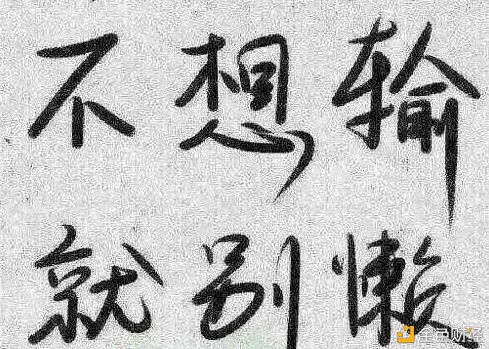 不想输
就别懒
金色财经